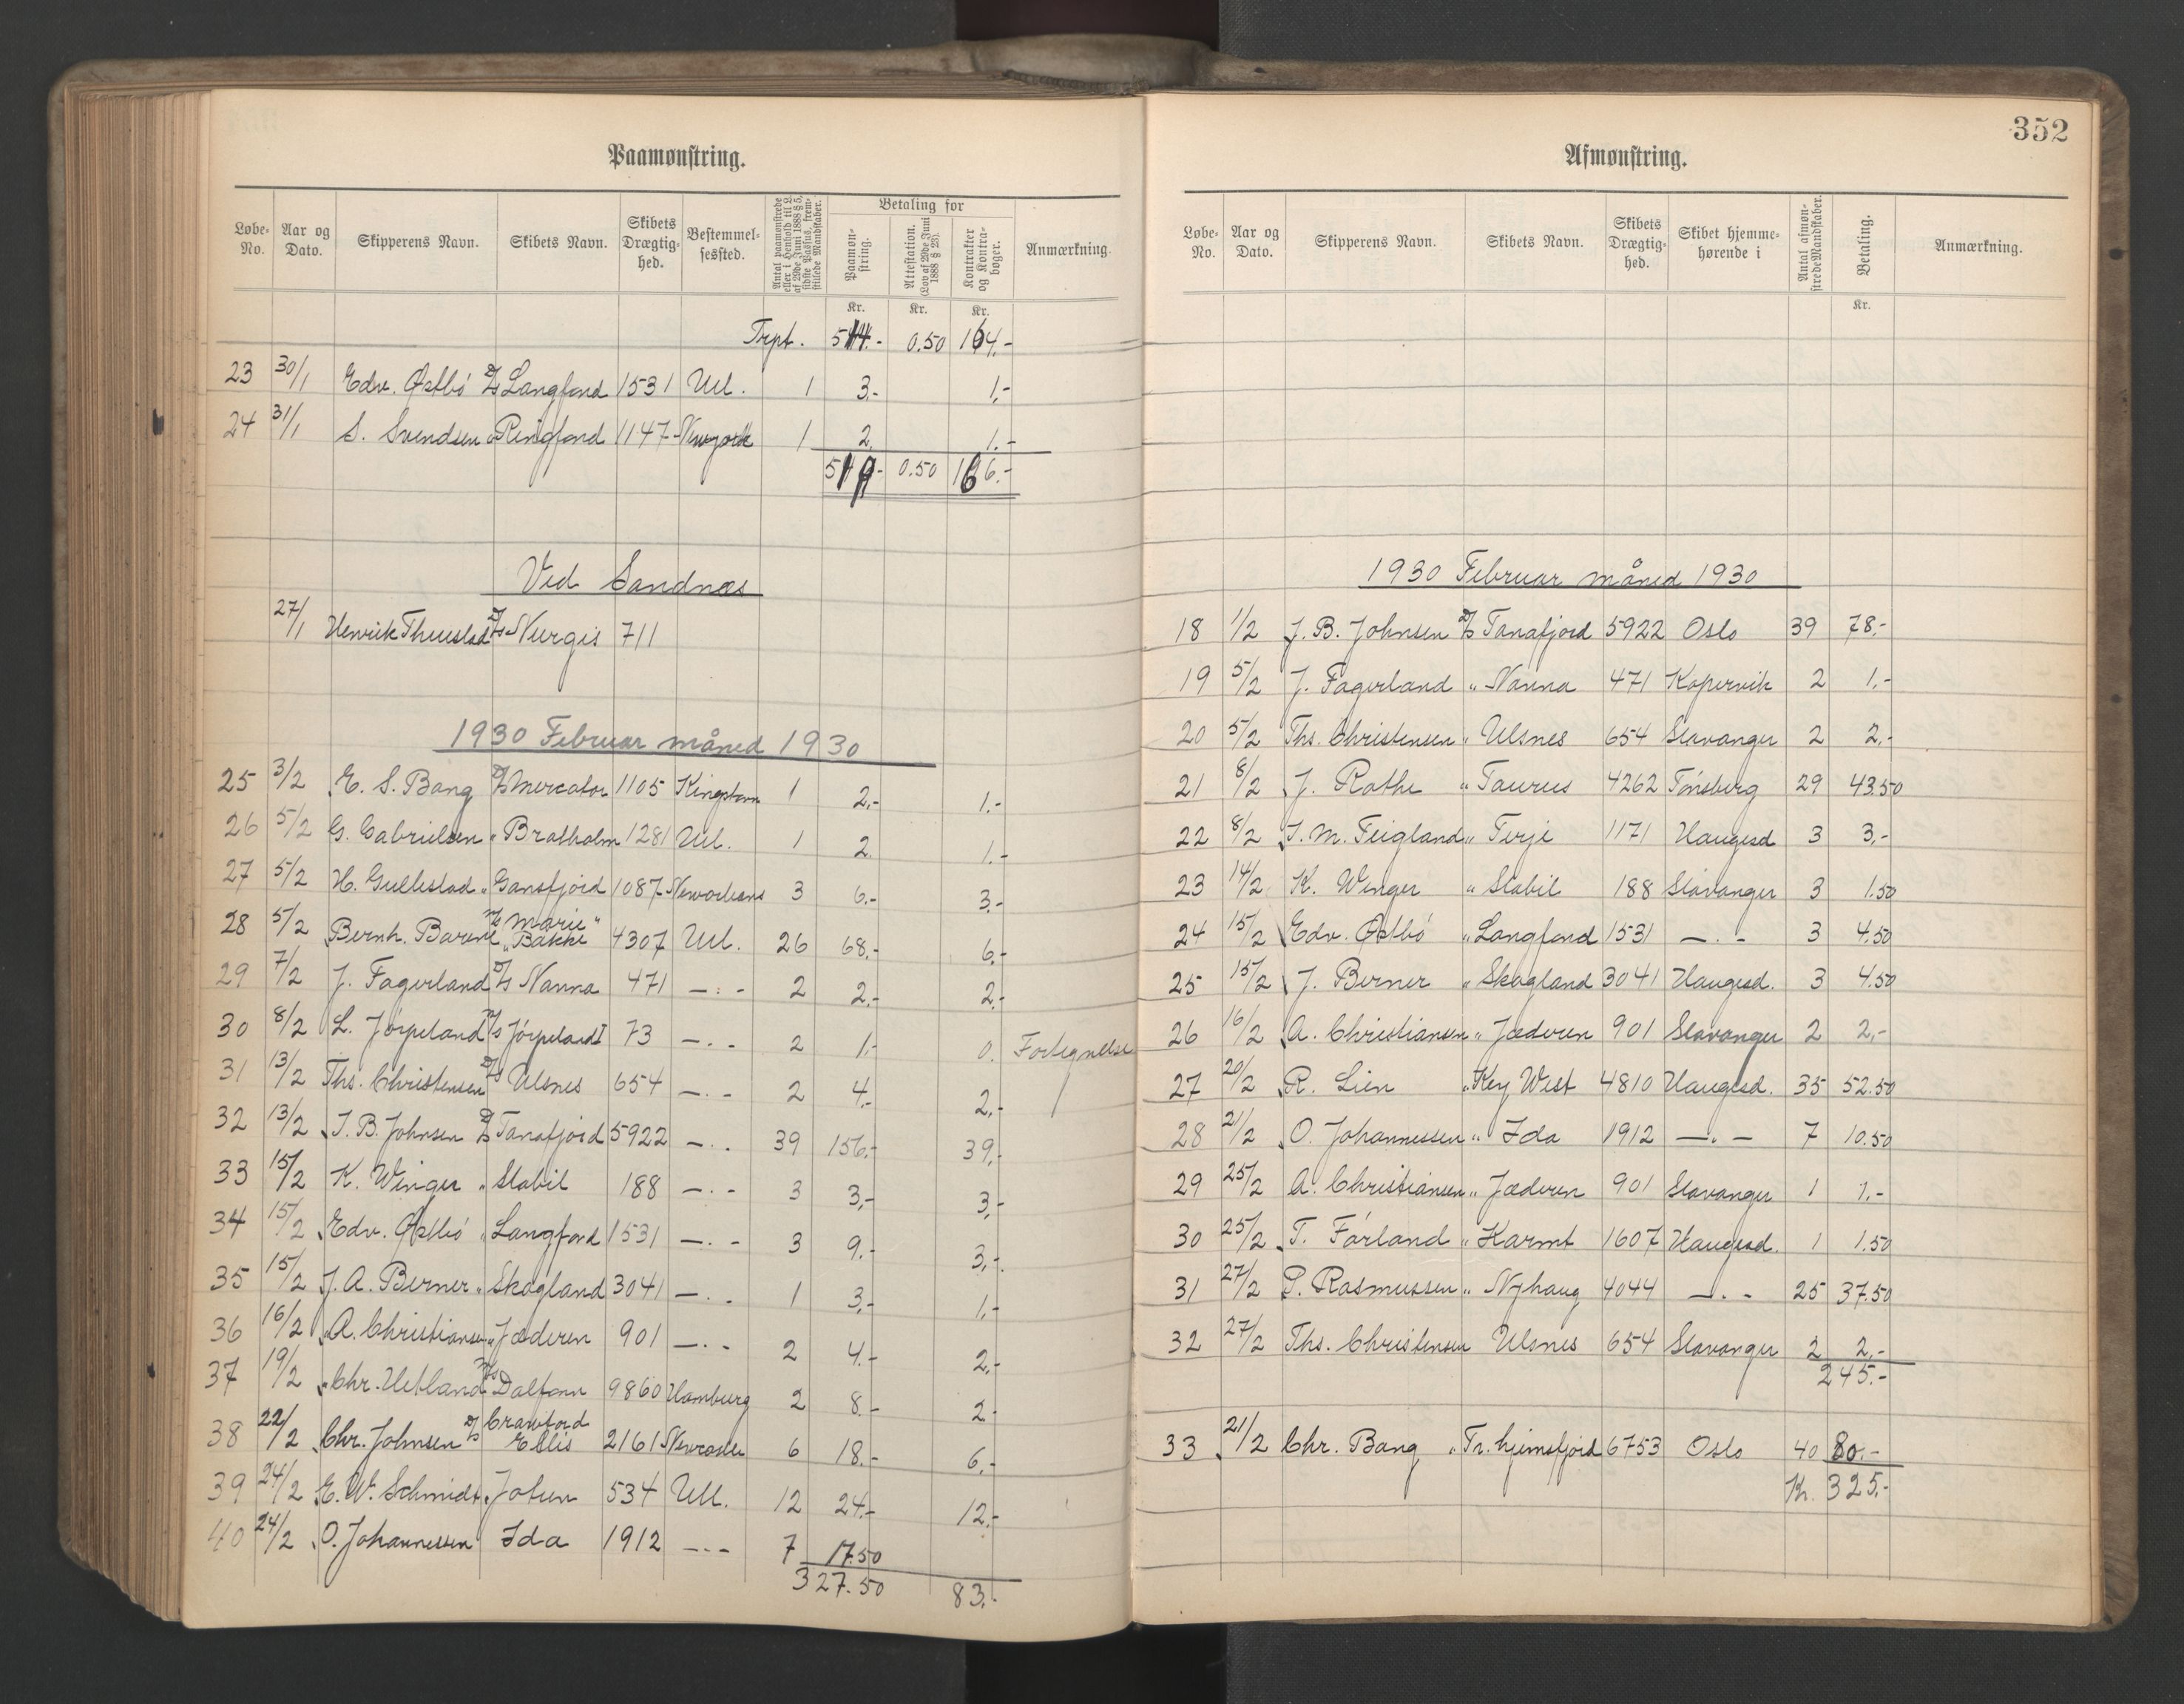 Paamønstring.
Løbe-No. Aar og Dato. Skipperens Navn. Skibets Navn. Skibets Drægtig-hed. Bestemmel-sessted. Antal paamønstrede eller i Henhold til L. af 29de Juni 1888 § 5, sidste Passus, frem-stillede Mandskaber. Betaling for Paamøn-string. Attestation. (Lov af 29de Juni 1888 § 23). Kontrakter og Kontra-bøger. Anmærkning.
Kr. Kr. Kr.
Trpt. 514.- 0.50 164.-
23 30/1 Edv. Østbó D/S Langfond 1531 Utl. 1 3.- 1,-
24 31/1 S. Svendsen " Ringfond 1147 Newyork 1 2. 1.-
519.- 0.50 166.-
Ved Sandnæs
27/1 Henrik Thuestad D/S Nurgis 711
1930 Februar måned 1930
25 3/2 E. S. Bang D/S Mercator 1105 Kingston 1 2.- 1.-
26 5/2 G. Gabrielsen " Bratholm 1281 Utl. 1 2. 1.-
27 5/2 H. Gullestad " Gansfjord 1087 Neworleans 3 6.- 3.-
28 5/2 Bernh. M/S "Marie Bakke" 4307 Utl. 26 68.- 6.-
29 7/2 J. Fagerland D/S Nanna 471 —.- 2 2.- 2.-
30 8/2 L. Jórpeland M/S Jórpeland I 73 —.- 2 1.- 0. Fortegnelse
31 13/2 Ths. Christensen D/S Ulsnes 654 —.- 2 4.- 2.-
32 13/2 J. B. Johnsen D/S Tanafjord 5922 —.- 39 156.- 39.-
33 15/2 K. Winger " Stabil 188 —.- 3 3,- 3,-
34 15/2 Edv. Østbó " Langfond 1531 —.- 3 9.- 3,-
35 15/2 J. A. Berner " Skogland 3041 —.- 1 3,- 1,-
36 16/2 A. Christiansen " Jæderen 901 —.- 2 4.- 2.-
37 19/2 Chr. Uetland M/S Dalfonn 9860 Hamburg 2 8.- 2.-
38 22/2 Chr. Johnsen D/S Crawford Ellis 2161 Newcastle 6 18.- 6.-
39 24/2 E. W. Schmidt " Jotun 534 Utl. 12 24.- 12.-
40 24/2 O. Johannessen Ida 1912 —.- 7 17.50
327.50 83.-
352
Afmønstring.
Løbe-No. Aar og Dato. Skipperens Navn. Skibets Navn. Skibets Drægtig-hed. Skibet hjemme-hørende i Antal afmøn-strede Mandskaber. Betaling. Anmærkning.
Kr.
1930 Februar måned 1930
18 1/2 J. B. Johnsen D/S Tanafjord 5922 Oslo 39 78.-
19 5/2 J. Fagerland " Nanna 471 Kopervik 2 1.-
20 5/2 Ths. Christensen " Ulsnes 654 Stavanger 2 2.-
21 8/2 J. Rathe " Taurus 4262 Tónsberg 29 43.50
22 8/2 T. M. Feigland " Terje 1171 Haugesd 3 3,-
23 14/2 K. Winger " Stabil 188 Stavanger 3 1.50
24 15/2 Edv. Østbó " Langfond 1531 —.- 3 4.50
25 15/2 J. Berner " Skogland 3041 Haugesd. 3 4.50
26 16/2 A. Christiansen " Jæderen 901 Stavanger 2 2,-
27 20/2 R. Lien " Key West 4810 Haugesd. 35 52.50
28 21/2 O. Johannessen " Ida 1912 —.— 7 10.50
29 25/2 A. Christiansen " Jæderen 901 Stavanger 1 1.-
30 25/2 T. Fórland " Karmt 1607 Haugesd. 1 1.50
31 27/2 P. Rasmussen " Nyhaug 4044 —.- 25 37.50
32 27/2 Ths. Christensen Ulsnes 654 Stavanger 2 2.-
245.-
33 21/2 Chr. Bang " Tr.hjemsfjord 6753 Oslo 40 80.-
Kr. 325.-